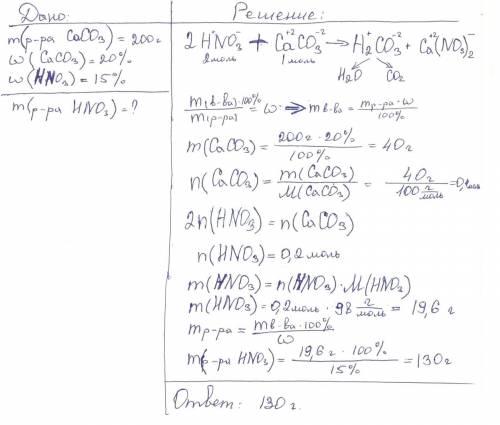 Дано:
m(р-ра CaCO₃) = 200г
ω(CaCO₃) = 20%
ω(HNO₃) = 15%
m(р-ра HNO₃) = ?
Решение:
2H⁺NO₃⁻ + Ca⁺²CO₃⁻² → H₂⁺CO₃⁻² + Ca⁺²(NO₃)₂⁻
2моль 1моль
H₂O CO₂
m(в-ва)·100% / m(р-ра) = ω ⇒ m в-ва = m р-ра · ω / 100%
m(CaCO₃) = 200г · 20% / 100% = 40г
n(CaCO₃) = m(CaCO₃) / M(CaCO₃) = 40г / 100 г/моль = 0,4моль
2n(HNO₃) = n(CaCO₃)
n(HNO₃) = 0,2моль
m(HNO₃) = n(HNO₃) · M(HNO₃)
m(HNO₃) = 0,2моль · 98 г/моль = 19,6 г
m р-ра = m в-ва · 100% / ω
m(р-ра HNO₃) = 19,6г · 100% / 15% = 130г
Ответ: 130г.